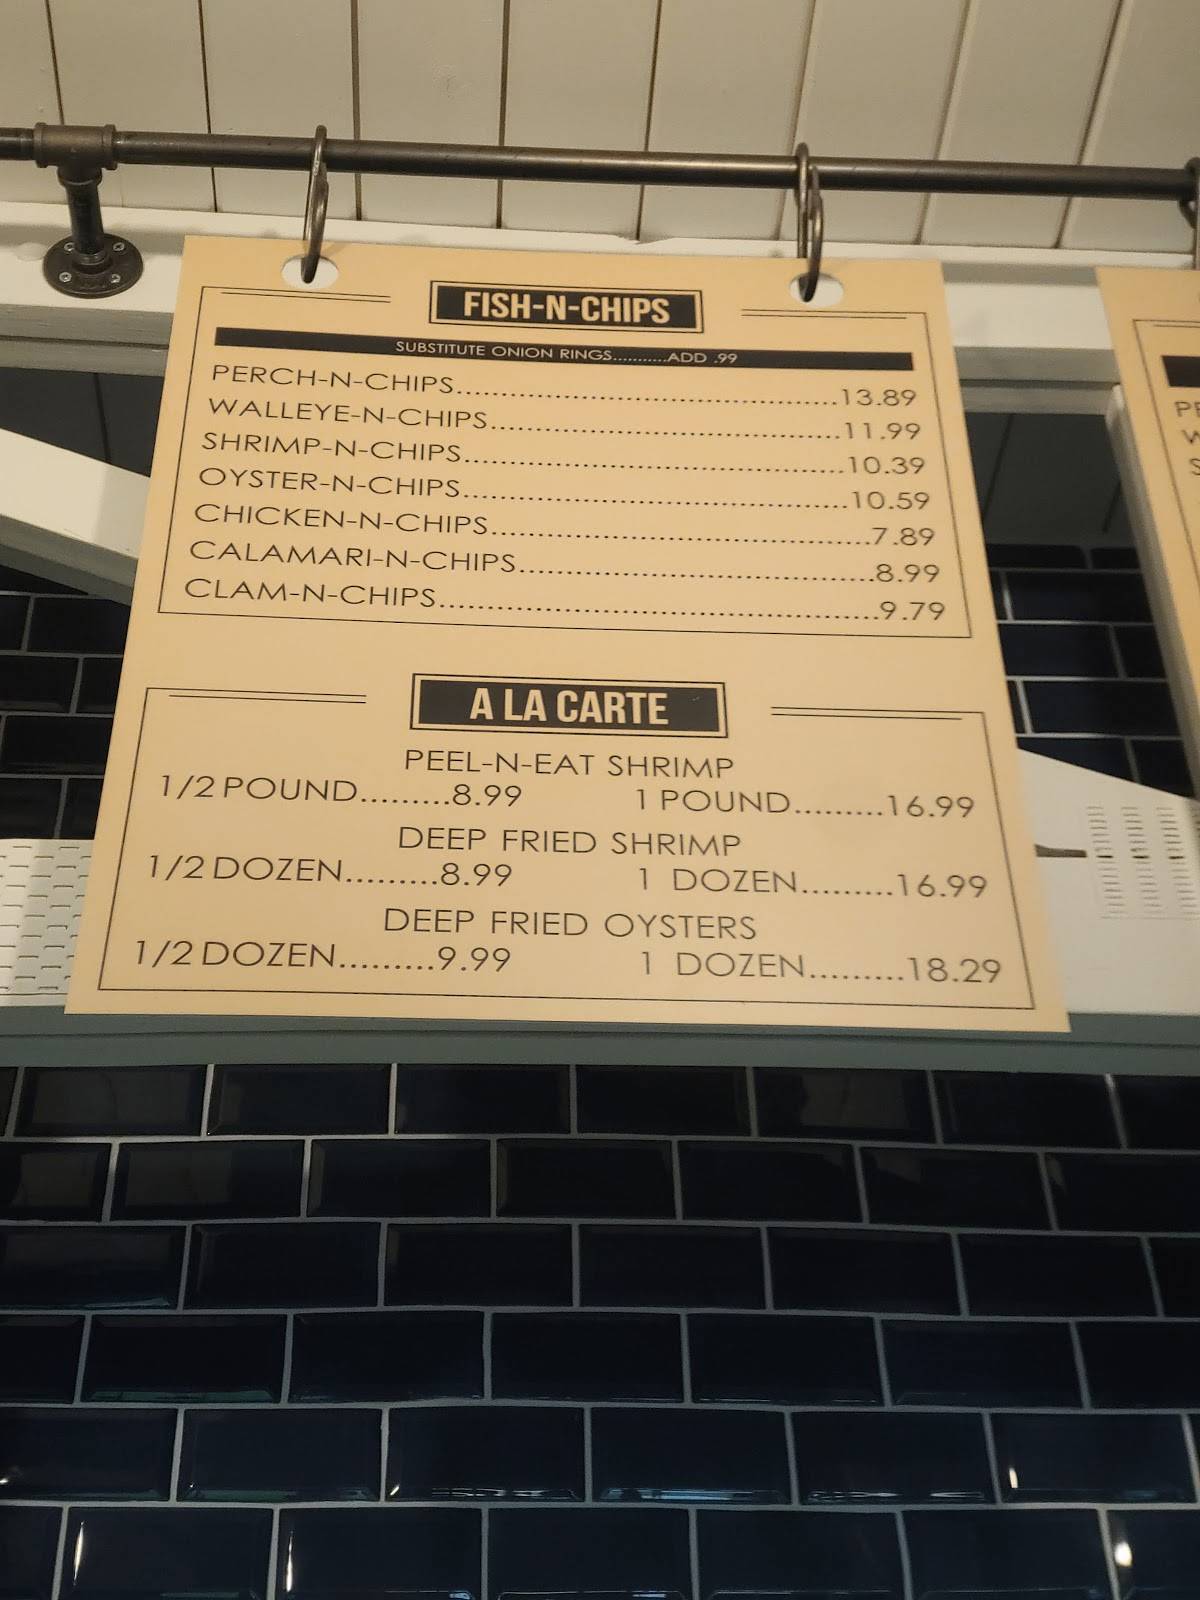 FISH-N-CHIPS
SUBSTITUTE ONION RINGS...........ADD .99
PERCH-N-CHIPS..........13.89
WALLEYE-N-CHIPS..........11.99
SHRIMP-N-CHIPS..........10.39
OYSTER-N-CHIPS..........10.59
CHICKEN-N-CHIPS..........7.89
CALAMARI-N-CHIPS..........8.99
CLAM-N-CHIPS..........9.79
A LA CARTE
PEEL-N-EAT SHRIMP
1/2 POUND.........8.99 1 POUND.........16.99
DEEP FRIED SHRIMP
1/2 DOZEN.........8.99 1 DOZEN.........16.99
DEEP FRIED OYSTERS
1/2 DOZEN.........9.99 1 DOZEN.........18.29